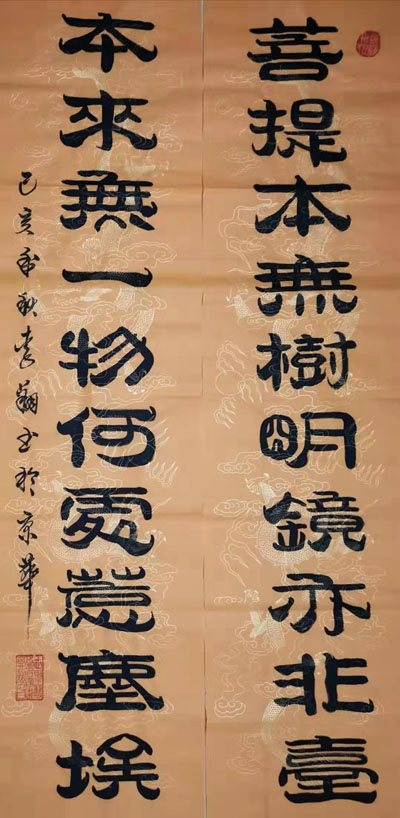 菩提本無樹明鏡亦非臺
本來無一物何處惹塵埃
己亥年秋李翰书於京華